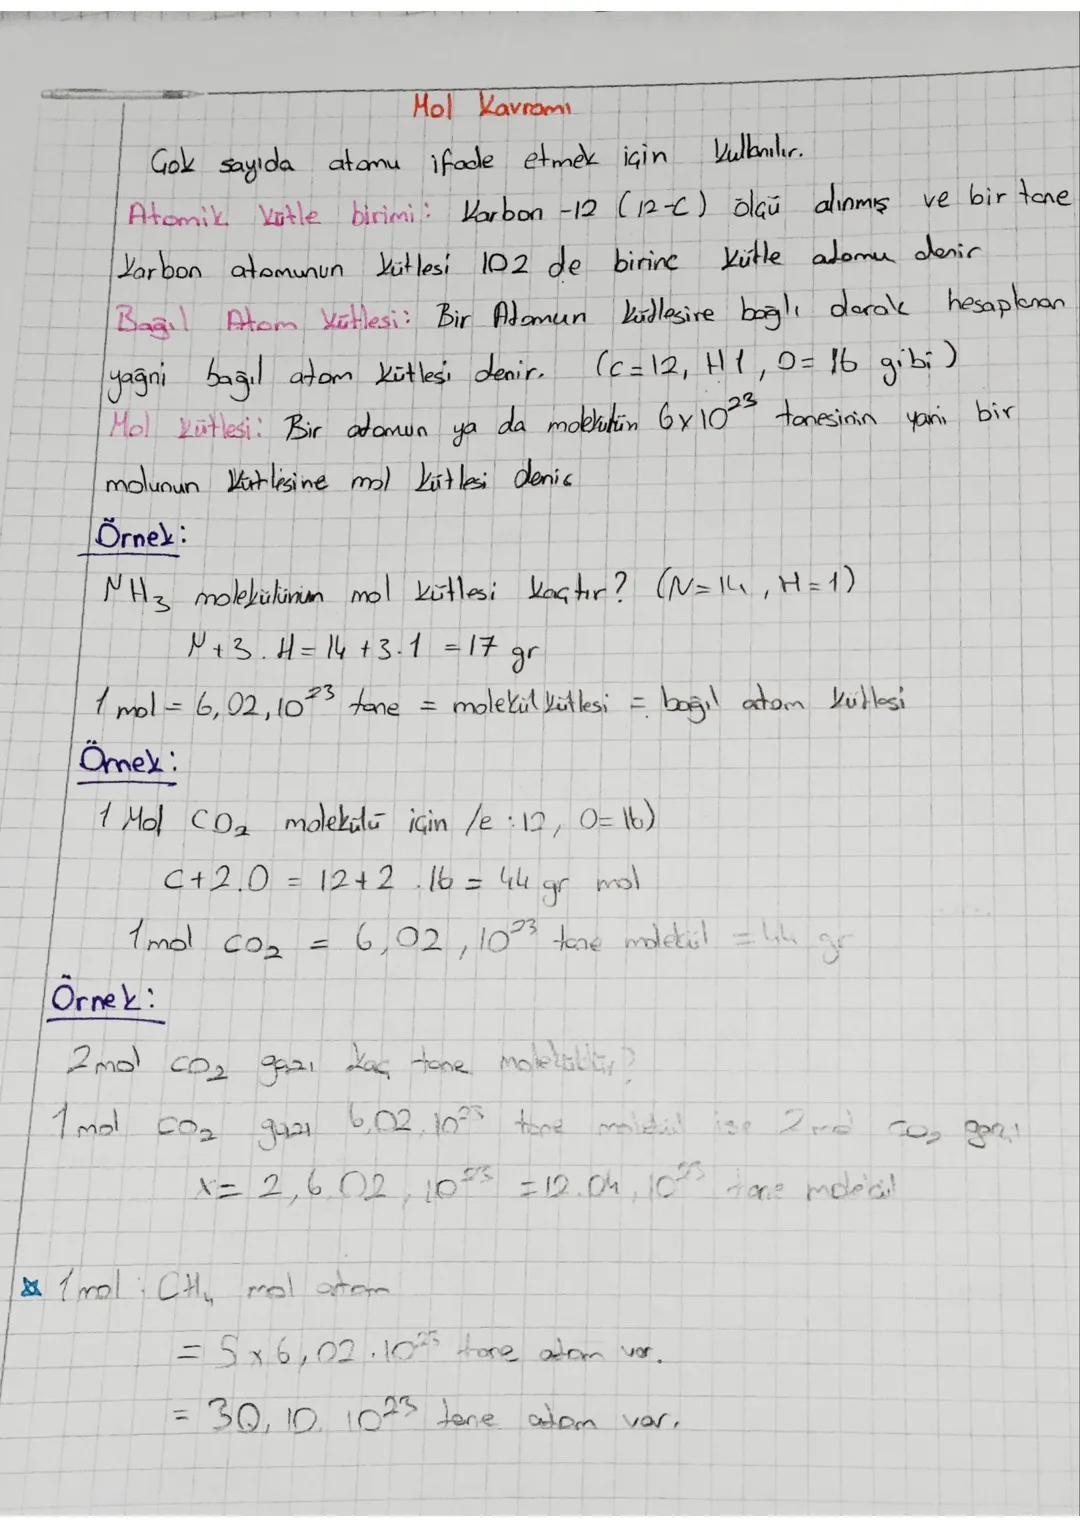 Mol Kavramı
Çok sayıda atomu ifade etmek için kullanılır.
Atomik kütle birimi: Karbon -12 (12-C) ölçü alınmış ve bir tane
Karbon atomunun kütlesi 102 de birine kütle atomu denir
Bağıl Atom kütlesi: Bir Atomun kütlesine bağlı olarak hesaplanan
yağni bağıl atom kütlesi denir. (C=12, H1, O=16 gibi)
Mol kütlesi: Bir atomun ya da molekülün 6x10²³ tanesinin yani bir
molunun kütlesine mol kütlesi denir
Örnek:
NH₃ molekülünün mol kütlesi kaçtır? (N=14, H=1)
N+3.H=14+3.1=17 gr
1 mol = 6,02,10²³ tane = molekül kütlesi = bağıl atom kütlesi
Örnek:
1 Mol CO₂ molekülü için /e:12, O=16)
C+2.O = 12+2.16 = 44 gr mol
1mol CO₂ = 6,02,10²³ tane molekül = 44 gr
Örnek:
2mol CO₂ gazı kaç tane moleküldür?
1 mol CO₂ gazı 6,02.10²³ tane molekül ise 2 mol CO₂ gazı
x= 2,6.02,10²³ =12.04,10²³ tane molekül
1 mol CH₄ mol atom
= 5x6,02.10²³ tane atom var.
= 30,10.10²³ tane atom var.